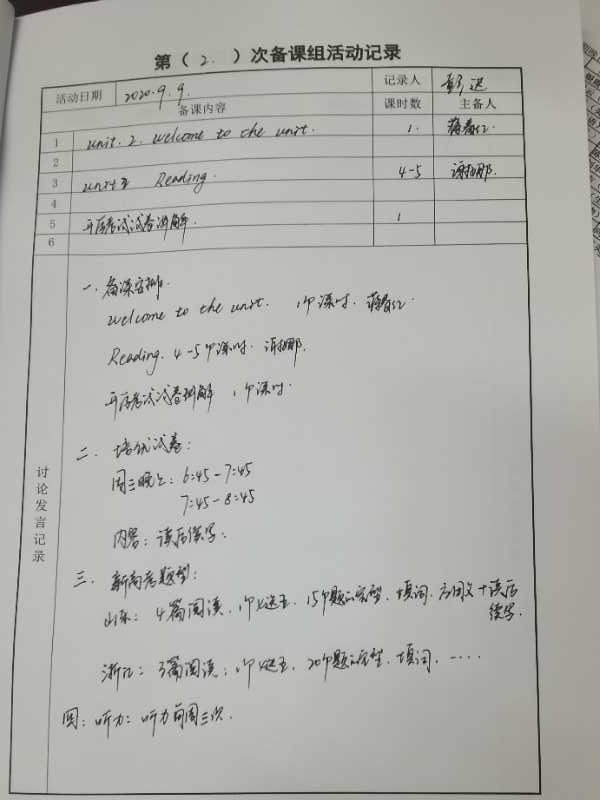 第（2.）次备课组活动记录
活动日期 2020.9.9. 记录人
备课内容 课时数 主备人
1 unit.2 welcome to the unit. 1.
2
3 unit 2 Reading. 4-5 谢娜.
4
5 开学考试试卷讲解. 1
6
讨论发言记录
一. 备课安排.
welcome to the unit. 1个课时.
Reading. 4-5个课时.
开学考试试卷讲解 1个课时.
二. 培优试卷:
周三晚上: 6:45-7:45
7:45-8:45
内容: 读后续写.
三. 新高考题型:
山东: 4篇阅读. 1个七选五. 15个题的完型. 填词. 应用文+读后
续写.
浙江: 3篇阅读; 1个七选五. 20个题的完型. 填词. ....
四: 听力: 听力每周三次.